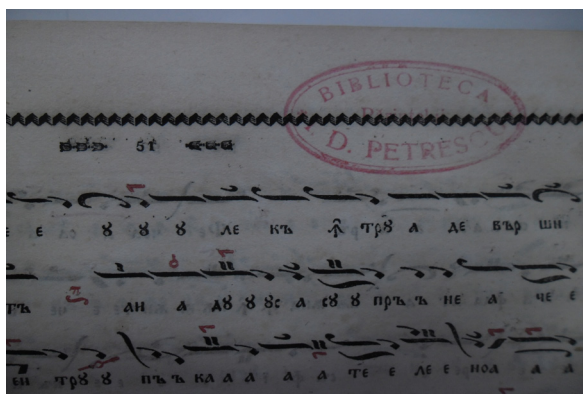 BIBLIOTECA
D. PETRESCU
51
Е Е Ꙋ Ꙋ Ꙋ ЛЕ КЪ Ꙟ ТРꙊ А ДЕ ВЪР ШИ
ТЪ АН А ДꙊ Ꙋ ꙊС А СꙊ Ꙋ ПРЪ Ъ НЕ А ЧЕ Е
ЕН ТРꙊ Ꙋ ПЪ Ъ КА А А А А ТЕ Е ЛЕ Е НОА А А